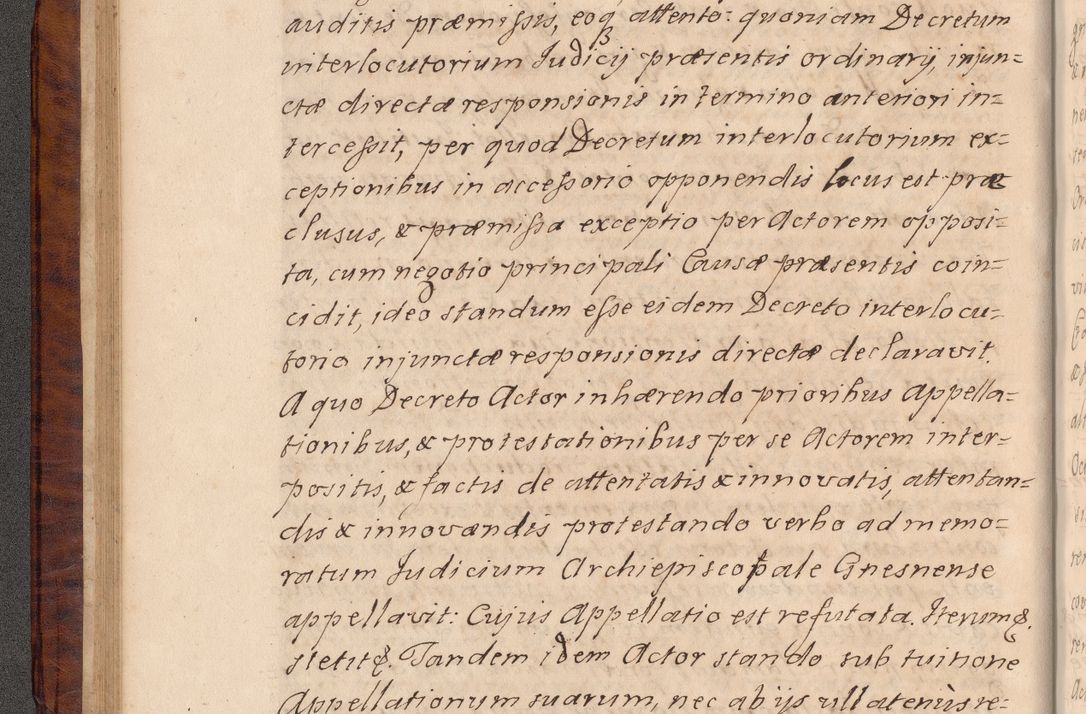 auditis præmissis, eoq3 attento: quoniam Decretum
interlocutorium Judicij præsentis ordinarij, injun=
ctæ directæ responsionis in termino anteriori in=
tercessit, per quod Decretum interlocutorium ex=
ceptionibus in accessorio opponendis locus est præ
clusus, & præmissa exceptio per Actorem opposi=
ta, cum negotio principali Causæ præsentis coin=
cidit, ideo standum esse eidem Decreto interlocu=
torio injunctæ responsionis directæ declaravit.
A quo Decreto Actor inhærendo prioribus Appella=
tionibus, & protestationibus per se Actorem inter=
positis, & factis de attentatis & innovatis, attentan=
dis & innovandis protestando verbo ad memo=
ratum Judicium Archiepiscopale Gnesnense
appellavit: Cujus Appellatio est refutata. Iterum &.
stetit &. Tandem idem Actor stando sub tuitione
Appellationum suarum, nec ab ijs ullatenus re=